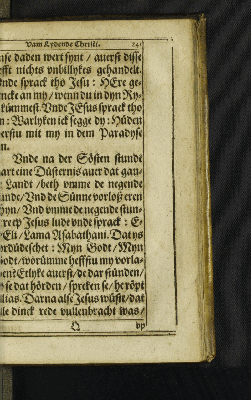 Vam Lydende Christi. 241
nse daden wert synt / auerst disse
efft nichts vnbillykes gehandelt.
nde sprack tho Jesu: HEre ge-
encke an my / wenn du in dyn Ry-
kümmest. Vnde JEsus sprack tho
n: Warlyken ick segge dy: Hüden
erstu mit my in dem Paradyse
n.
Vnde na der Sösten stunde
art eine Düsternis auer dat gan-
Landt / beth vmme de negende
unde / Vnd de Sünne vorloß eren
hyn / Vnd vmme de negende stun-
reep Jesus lude vnde sprack: E-
Eli / Lama Asabathani. Dat ys
rdüdeschet: Myn Godt / Myn
Godt / worümme heffstu my vorla-
ent Etlyke auerst / de dar stünden /
se dat hörden / spreken se / he röpt
lias. Darna alse Jesus wüste / dat
lle dinck rede vullenbracht was /
vp